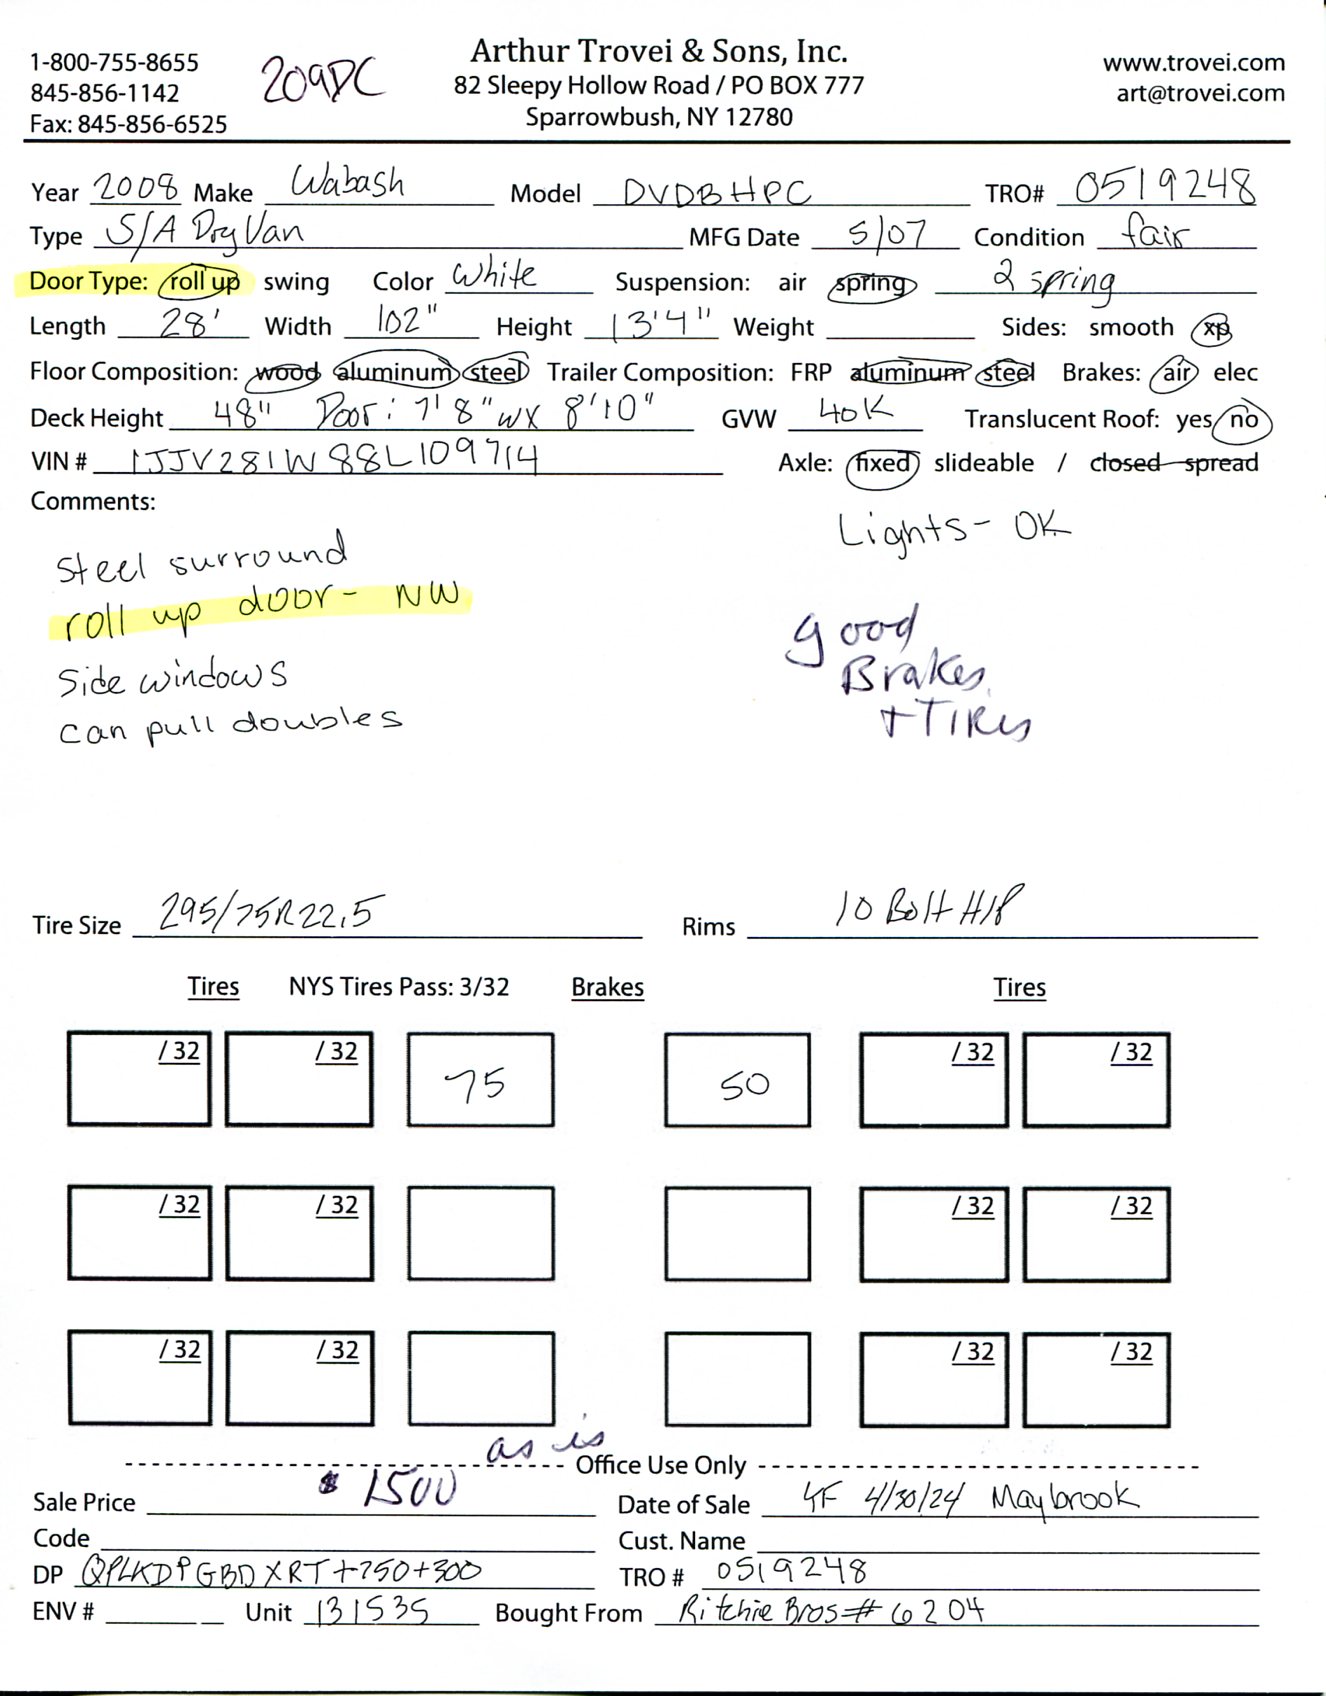 1-800-755-8655
845-856-1142
Fax: 845-856-6525
209DC
Arthur Trovei & Sons, Inc.
82 Sleepy Hollow Road / PO BOX 777
Sparrowbush, NY 12780
www.trovei.com
art@trovei.com
Year 2008 Make Wabash Model DVDBHPC TRO# 0519248
Type S/A Dry Van MFG Date 5/07 Condition fair
Door Type: roll up swing Color White Suspension: air spring 2 spring
Length 28' Width 102" Height 13'4" Weight Sides: smooth xp
Floor Composition: wood aluminum steel Trailer Composition: FRP aluminum steel Brakes: air elec
Deck Height 48" Door: 7'8"w x 8'10" GVW 40K Translucent Roof: yes no
VIN # 1JJV281W88L109714 Axle: fixed slideable / closed spread
Comments:
Lights- OK
steel surround
roll up door- NW
side windows
can pull doubles
good
Brakes
+ TIRes
Tire Size 295/75R22.5 Rims 10 Bolt H/P
Tires NYS Tires Pass: 3/32 Brakes Tires
/ 32 / 32 75 50 / 32 / 32
/ 32 / 32 / 32 / 32
/ 32 / 32 / 32 / 32
as is
Office Use Only
Sale Price $1500 Date of Sale 4/30/24 Maybrook
Code Cust. Name
DP QPLKDPGBDXRT+750+300 TRO # 0519248
ENV # Unit 131535 Bought From Ritchie Bros # 6204